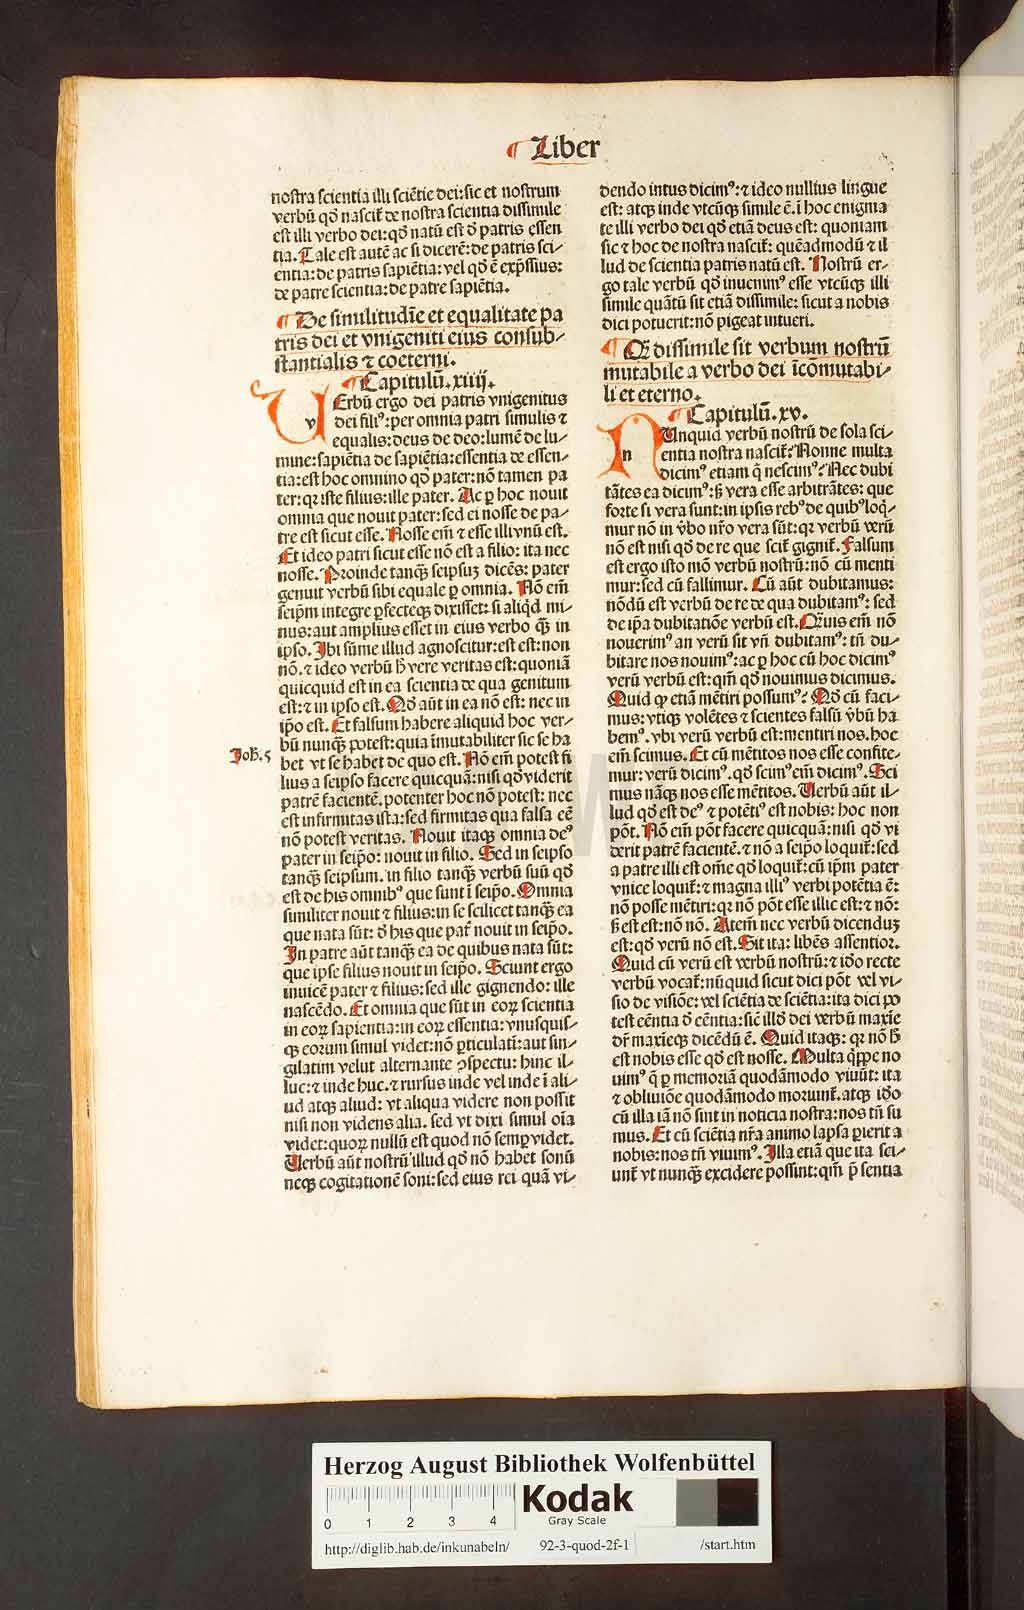 ¶ Liber
nostra scientia illi sciẽtie dei: sic et nostrum
verbũ qđ nascit̃ de nostra scientia dissimile
est illi verbo dei: qđ natũ est ð patris essen
tia. Tale est autẽ ac si dicerẽ: de patris sci-
entia: de patris sapiẽtia: vel qđ ẽ exp̃ssius:
de patre scientia: de patre sapiẽtia.
¶ De similitudĩe et equalitate pa
tris dei et vnigeniti eius consub-
stantialis ⁊ coeterni.
¶ Capitulũ. xiiij.
VErbũ ergo dei patris vnigenitus
dei filiꝰ: per omnia patri similis ⁊
equalis: deus de deo: lumẽ de lu-
mine: sapiẽtia de sapiẽtia: essentia de essen-
tia: est hoc omnino qđ pater: nõ tamen pa
ter: qꝛ iste filius: ille pater. Ac ꝑ hoc nouit
omnia que nouit pater: sed ei nosse de pa-
tre est sicut esse. Nosse em̃ ⁊ esse illi vnũ est.
Et ideo patri sicut esse nõ est a filio: ita nec
nosse. Proinde tanqꝫ seipsuꝫ dicẽs: pater
genuit verbũ sibi equale ꝑ omnia. Nõ em̃
seip̃m integre ꝑfecteqꝫ dixisset: si aliqđ mi-
nus: aut amplius esset in eius verbo qꝫ in
ipso. Ibi sũme illud agnoscitur: est est: non
nõ. ⁊ ideo verbũ h̃ vere veritas est: quoniã
quicquid est in ea scientia de qua genitum
est: ⁊ in ipso est. Qđ aũt in ea nõ est: nec in
ip̃o est. Et falsum habere aliquid hoc ver-
bũ nunqꝫ potest: quia ĩmutabiliter sic se ha
Joh̃. 5
bet vt se habet de quo est. Nõ em̃ potest fi
lius a seipso facere quicquã: nisi qđ viderit
patrẽ facientẽ. potenter hoc nõ potest: nec
est infirmitas ista: sed firmitas qua falsa eẽ
nõ potest veritas. Nouit itaqꝫ omnia deꝰ
pater in seip̃o: nouit in filio. Sed in seipso
tanqꝫ seipsum. in filio tanqꝫ verbũ suũ qđ
est de his omnibꝰ que sunt ĩ seip̃o. Omnia
similiter nouit ⁊ filius: in se scilicet tanqꝫ ea
que nata sũt: ð his que pat̃ nouit in seip̃o.
In patre aũt tanqꝫ ea de quibus nata sũt:
que ipse filius nouit in seip̃o. Sciunt ergo
inuicẽ pater ⁊ filius: sed ille gignendo: ille
nascẽdo. Et omnia que sũt in eoꝝ scientia
in eoꝝ sapientia: in eoꝝ essentia: vnusquis-
qꝫ eorum simul videt: nõ ꝑticulatĩ: aut sin-
gilatim velut alternante ↄspectu: hinc il-
luc: ⁊ inde huc. ⁊ rursus inde vel inde ĩ ali-
ud atqꝫ aliud: vt aliqua videre non possit
nisi non videns alia. sed vt dixi simul oĩa
videt: quoꝝ nullũ est quod nõ semꝑ videt.
Uerbũ aũt nostrũ illud qđ nõ habet sonũ
neqꝫ cogitationẽ soni: sed eius rei quã vi-
dendo intus dicimꝰ: ⁊ ideo nullius lingue
est: atqꝫ inde vtcũqꝫ simile ẽ. ĩ hoc enigma
te illi verbo dei qđ etiã deus est: quoniam
sic ⁊ hoc de nostra nascit̃: quẽadmodũ ⁊ il
lud de scientia patris natũ est. Nostrũ er-
go tale verbũ qđ inuenimꝰ esse vtcũqꝫ illi
simile quãtũ sit etiã dissimile: sicut a nobis
dici potuerit: nõ pigeat intueri.
¶ Qđ dissimile sit verbum nostrũ
mutabile a verbo dei ĩcõmutabi-
li et eterno.
¶ Capitulũ. xv.
NUnquid verbũ nostrũ de sola sci-
entia nostra nascit̃? Nonne multa
dicimꝰ etiam q̃ nescimꝰ? Nec dubi
tãtes ea dicimꝰ: sꝫ vera esse arbitrãtes: que
forte si vera sunt: in ipsis rebꝰ de quibꝰ loq̃-
mur nõ in ṽbo nr̃o vera sũt: qꝛ verbũ verũ
nõ est nisi qđ de re que scit̃ gignit̃. Falsum
est ergo isto mõ verbũ nostrũ: nõ cũ menti
mur: sed cũ fallimur. Cũ aũt dubitamus:
nõdũ est verbũ de re de qua dubitamꝰ: sed
de ip̃a dubitatiõe verbũ est. Q̃uis em̃ nõ
nouerimꝰ an verũ sit vñ dubitamꝰ: tñ du-
bitare nos nouimꝰ: ac ꝑ hoc cũ hoc dicimꝰ
verũ verbũ est: qm̃ qđ nouimus dicimus.
Quid ꝙ etiã mẽtiri possumꝰ? Qđ cũ faci-
mus: vtiqꝫ volẽtes ⁊ scientes falsũ ṽbũ ha
bemꝰ. vbi verũ verbũ est: mentiri nos. hoc
em̃ scimus. Et cũ mẽtitos nos esse confite-
mur: verũ dicimꝰ. qđ scimꝰ em̃ dicimꝰ. Sci
mus nãqꝫ nos esse mẽtitos. Uerbũ aũt il-
lud qđ est deꝰ ⁊ potẽtiꝰ est nobis: hoc non
põt. Nõ em̃ põt facere quicquã: nisi qđ vi
derit patrẽ facientẽ. ⁊ nõ a seipo loquit̃: sed
a patre illi est om̃e qđ loquit̃: cũ ip̃m pater
vnice loquit̃: ⁊ magna illiꝰ verbi potẽtia ẽ:
nõ posse mẽtiri: qꝛ nõ põt esse illic est: ⁊ nõ:
sꝫ est est: nõ nõ. Atem̃ nec verbũ dicenduꝫ
est: qđ verũ nõ est. Sit ita: libẽs assentior.
Quid cũ verũ est verbũ nostrũ: ⁊ iðo recte
verbũ vocat̃: nũquid sicut dici põt vel vi-
sio de visiõe: vel sciẽtia de sciẽtia: ita dici po
test eẽntia ð eẽntia: sic̃ illđ dei verbũ maxĩe
dr̃ maxĩeqꝫ dicẽdũ ẽ. Quid itaqꝫ: qꝛ nõ h̃
est nobis esse qđ est nosse. Multa q̃ppe no
uimꝰ q̃ ꝑ memoriã quodãmodo viuũt: ita
⁊ obliuiõe quodãmodo moriunt̃. atqꝫ iðo
cũ illa iã nõ sint in noticia nostra: nos tñ su
mus. Et cũ sciẽtia nr̃a animo lapsa ꝑierit a
nobis: nos tñ viuimꝰ. Illa etiã que ita sci-
unt̃ vt nunqꝫ excidere possint: qm̃ p̃sentia
Herzog August Bibliothek Wolfenbüttel
0 1 2 3 4
Kodak
Gray Scale
http://diglib.hab.de/inkunabeln/ 92-3-quod-2f-1 /start.htm